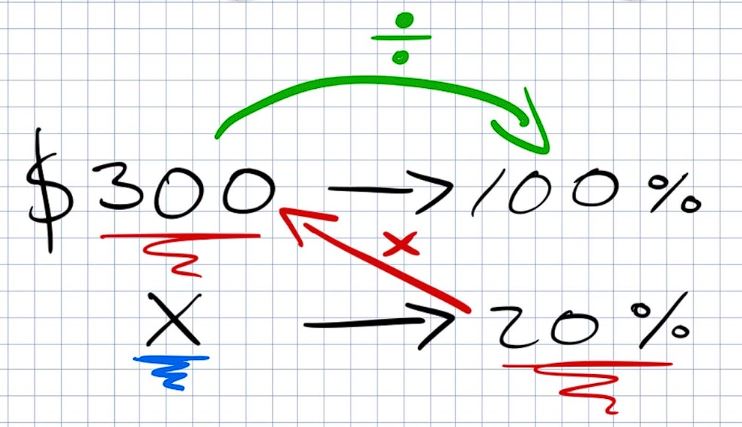 ÷
$300 → 100%
×
X → 20%